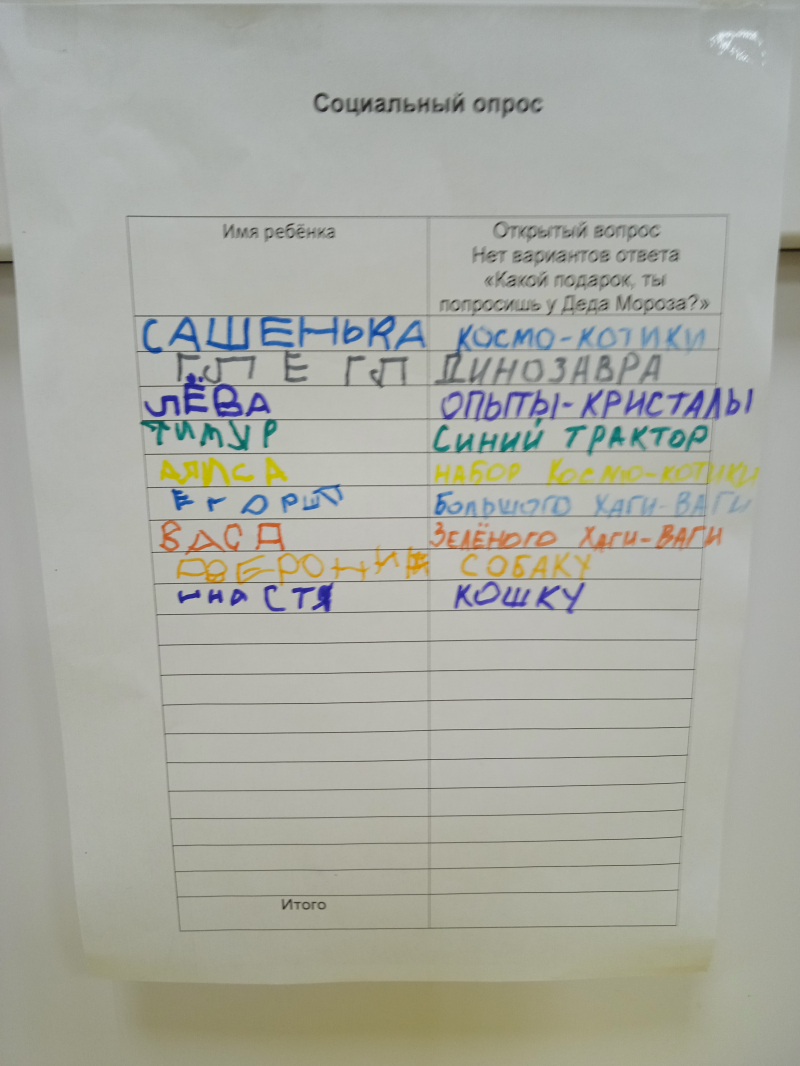 Социальный опрос
Имя ребёнка
Открытый вопрос
Нет вариантов ответа
«Какой подарок, ты
попросишь у Деда Мороза?»
САШЕНЬКА КОСМО-КОТИКИ
ДИНОЗАВРА
ЛЁВА ОПЫТЫ-КРИСТАЛЫ
ТИМУР СИНИЙ ТРАКТОР
АЛИСА НАБОР КОСМО-КОТИКИ
БОЛЬШОГО ХАГИ-ВАГИ
ВАСЯ ЗЕЛЁНОГО ХАГИ-ВАГИ
СОБАКУ
КОШКУ
Итого